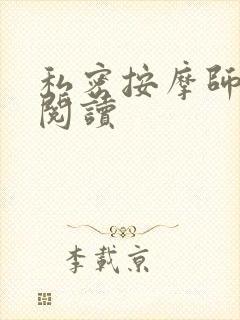 私密按摩師
閱讀
李載京